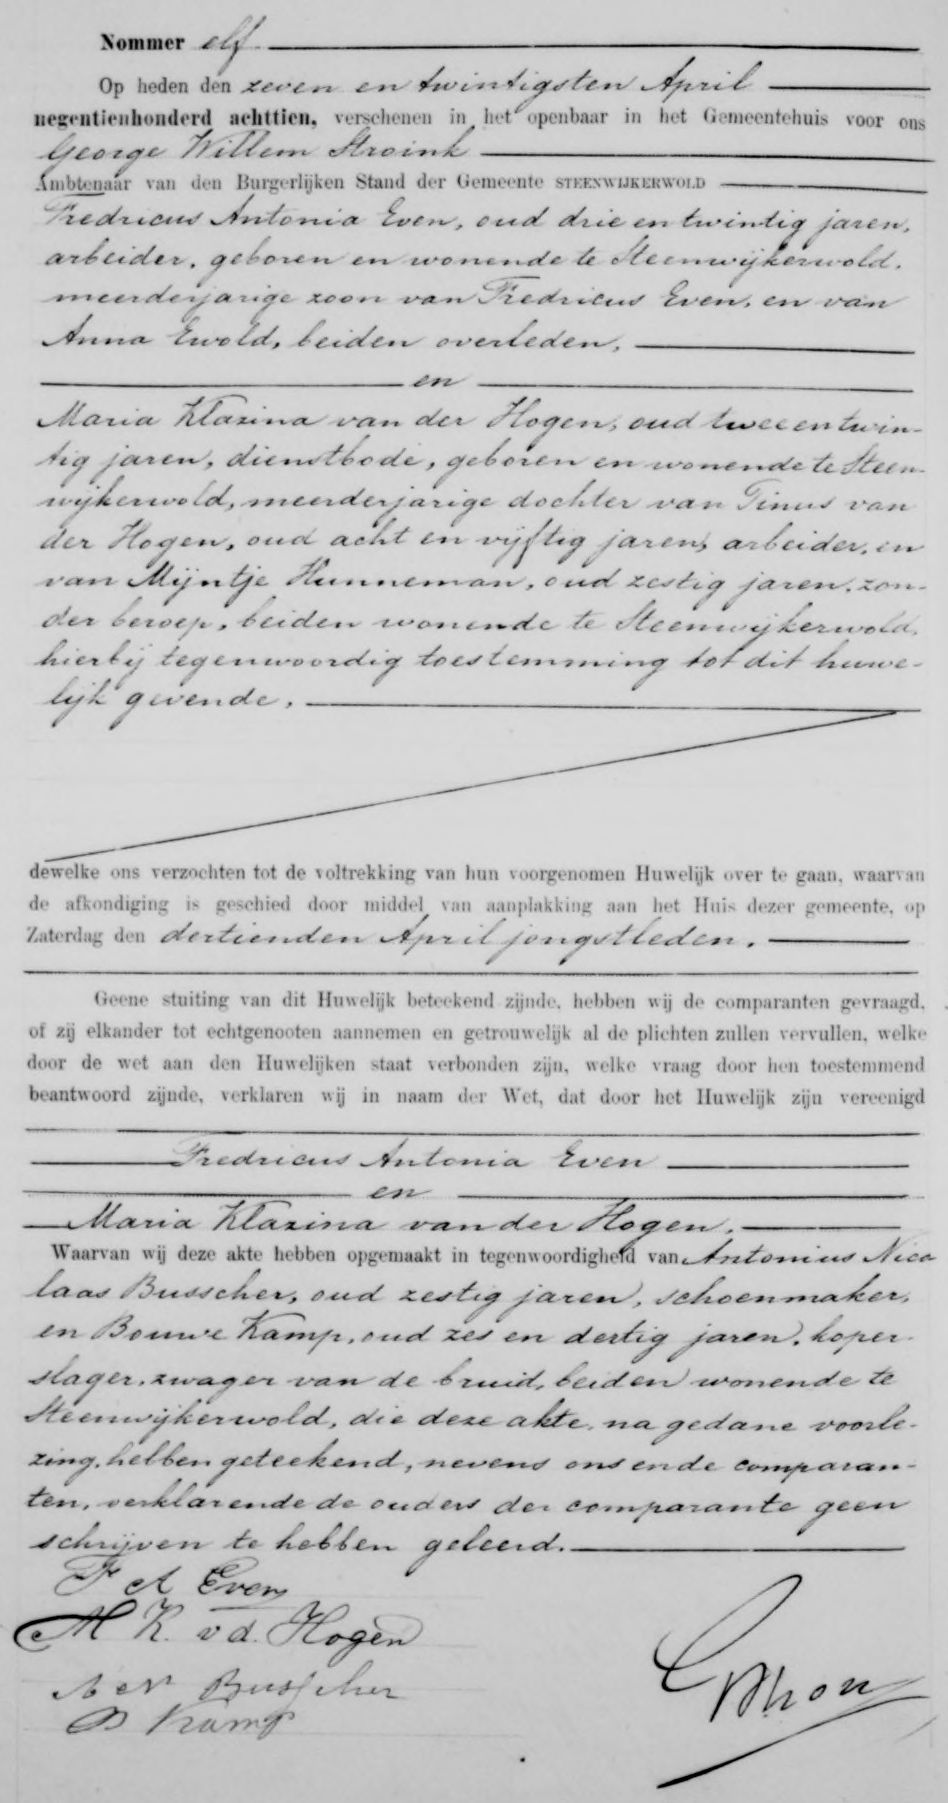 Nommer elf.
Op heden den zeven en twintigsten April
negentienhonderd achttien, verschenen in het openbaar in het Gemeentehuis voor ons
George Willem Stroink
Ambtenaar van den Burgerlijken Stand der Gemeente STEENWIJKERWOLD
Fredricus Antonia Even, oud drie en twintig jaren,
arbeider, geboren en wonende te Steenwijkerwold,
meerderjarige zoon van Fredricus Even, en van
Anna Ewold, beiden overleden,
en
Maria Klazina van der Hogen, oud twee en twin-
tig jaren, dienstbode, geboren en wonende te Steen-
wijkerwold, meerderjarige dochter van Tinus van
der Hogen, oud acht en vijftig jaren, arbeider, en
van Mijntje Hunneman, oud zestig jaren, zon-
der beroep, beiden wonende te Steenwijkerwold,
hierbij tegenwoordig toestemming tot dit huwe-
lijk gevende,
dewelke ons verzochten tot de voltrekking van hun voorgenomen Huwelijk over te gaan, waarvan
de afkondiging is geschied door middel van aanplakking aan het Huis dezer gemeente, op
Zaterdag den dertienden April jongstleden.
Geene stuiting van dit Huwelijk beteekend zijnde, hebben wij de comparanten gevraagd,
of zij elkander tot echtgenooten aannemen en getrouwelijk al de plichten zullen vervullen, welke
door de wet aan den Huwelijken staat verbonden zijn, welke vraag door hen toestemmend
beantwoord zijnde, verklaren wij in naam der Wet, dat door het Huwelijk zijn vereenigd
Fredricus Antonia Even
en
Maria Klazina van der Hogen.
Waarvan wij deze akte hebben opgemaakt in tegenwoordigheid van Antonius Nico
laas Busscher, oud zestig jaren, schoenmaker,
en Bouwe Kamp, oud zes en dertig jaren, koper-
slager, zwager van de bruid, beiden wonende te
Steenwijkerwold, die deze akte, na gedane voorle-
zing, hebben geteekend, nevens ons en de comparan-
ten, verklarende de ouders der comparante geen
schrijven te hebben geleerd.
F A Even
M K. v d. Hogen
A N Busscher
B Kamp